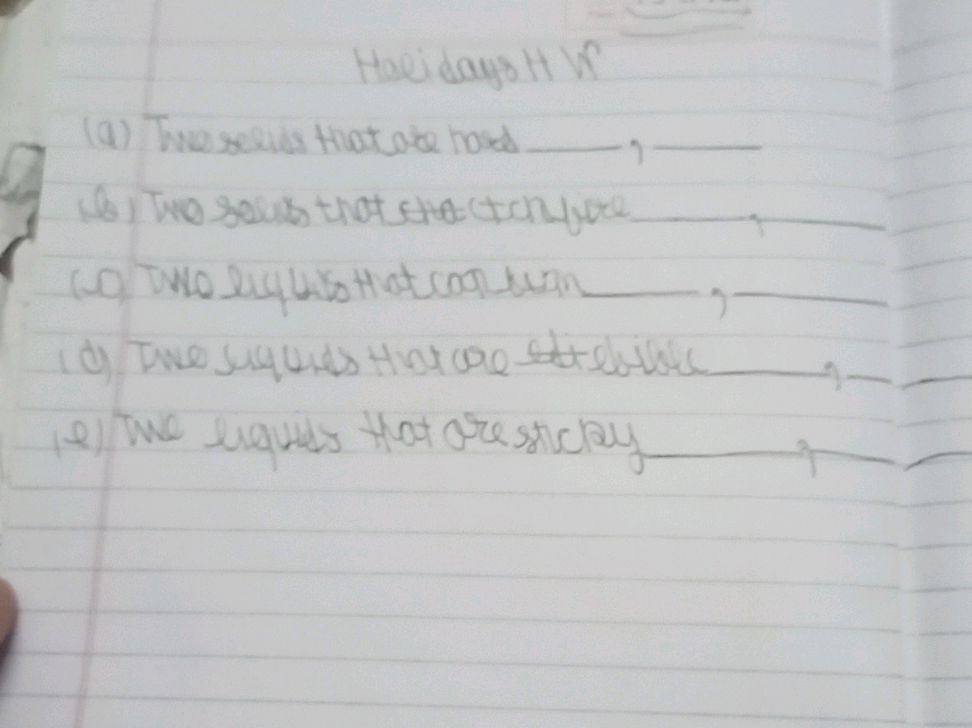 Holidays H W
(a) Two solids that are hard ______ , ______
(b) Two solids that catch fire ______ , ______
(c) Two liquids that can burn ______ , ______
(d) Two liquids that are ______ , ______
(e) Two liquids that are sticky ______ , ______